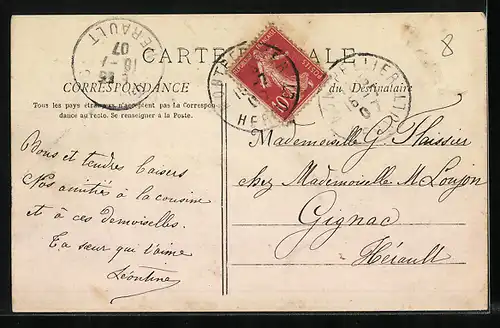 8
CARTE POSTALE
CORRESPONDANCE
du Destinataire
Tous les pays étrangers n'acceptent pas la Correspon-
dance au recto. Se renseigner à la Poste.
HERAULT
18 -7
07
10
Bons et tendres baisers
Nos amitiés à la cousine
et à ces demoiselles.
Ta sœur qui t'aime
Léontine
Mademoiselle G. Plaissier
chez Mademoiselle M. Loujon
Gignac
Hérault